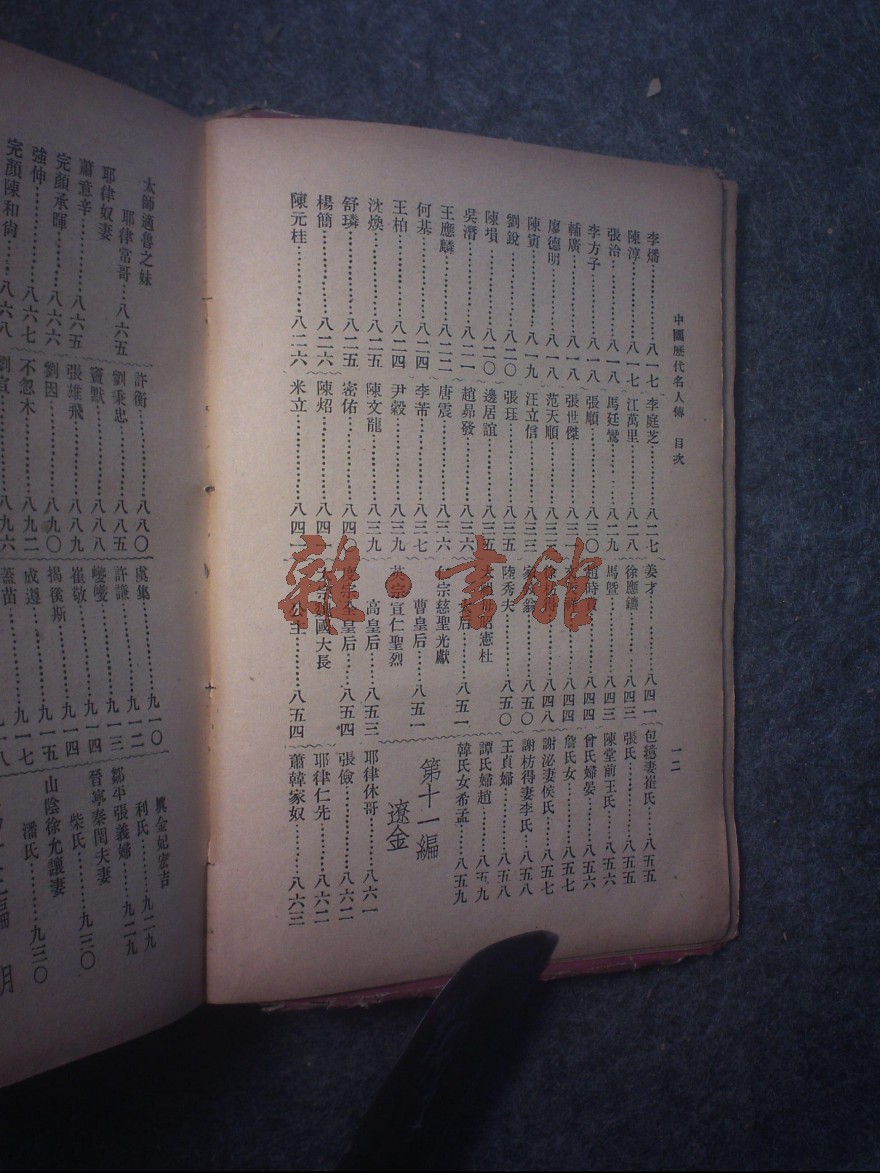 中國歷代名人傳 目次
一二
李燔⋯⋯八一七
陳淳⋯⋯八一七
張治⋯⋯八一八
李方子⋯⋯八一八
輔廣⋯⋯八一八
廖德明⋯⋯八一八
陳寅⋯⋯八一九
劉銳⋯⋯八二〇
陳塤⋯⋯八二〇
吳潛⋯⋯八二一
王應麟⋯⋯八二二
何基⋯⋯八二四
王柏⋯⋯八二四
沈煥⋯⋯八二五
舒璘⋯⋯八二五
楊簡⋯⋯八二六
陳元桂⋯⋯八二六
李庭芝⋯⋯八二七
江萬里⋯⋯八二八
馬廷鸞⋯⋯八二九
張順⋯⋯八三〇
張世傑⋯⋯八三一
范天順⋯⋯八三三
汪立信⋯⋯八三三
張珏⋯⋯八三五
邊居誼⋯⋯八三五
趙昴發⋯⋯八三六
唐震⋯⋯八三六
李芾⋯⋯八三七
尹穀⋯⋯八三九
陳文龍⋯⋯八三九
密佑⋯⋯八四〇
陳炤⋯⋯八四一
米立⋯⋯八四一
姜才⋯⋯八四一
徐應鑣⋯⋯八四三
馬曁⋯⋯八四三
趙時賞⋯⋯八四四
⋯⋯八四四
⋯⋯八四八
⋯⋯八五〇
陸秀夫⋯⋯八五〇
憲杜
太后⋯⋯八五一
仁宗慈聖光獻
曹皇后⋯⋯八五一
英宗宣仁聖烈
高皇后⋯⋯八五三
宗全皇后⋯⋯八五四
國大長
公主⋯⋯八五四
包繶妻崔氏⋯⋯八五五
張氏⋯⋯八五五
陳堂前王氏⋯⋯八五六
曾氏婦晏⋯⋯八五六
詹氏女⋯⋯八五七
謝泌妻侯氏⋯⋯八五七
謝枋得妻李氏⋯⋯八五八
王貞婦⋯⋯八五八
譚氏婦趙⋯⋯八五九
韓氏女希孟⋯⋯八五九
第十一編
遼金
耶律休哥⋯⋯八六一
張儉⋯⋯八六二
耶律仁先⋯⋯八六二
蕭韓家奴⋯⋯八六三
太師適魯之妹
耶律常哥⋯⋯八六五
耶律奴妻
蕭意辛⋯⋯八六五
完顏承暉⋯⋯八六六
強伸⋯⋯八六七
完顏陳和尙⋯⋯八六八
許衡⋯⋯八八〇
劉秉忠⋯⋯八八五
竇默⋯⋯八八八
張雄飛⋯⋯八八九
劉因⋯⋯八九〇
不忽木⋯⋯八九二
劉宣⋯⋯八九六
虞集⋯⋯九一〇
許謙⋯⋯九一三
巙巙⋯⋯九一四
崔敬⋯⋯九一四
揭傒斯⋯⋯九一五
成遵⋯⋯九一七
蓋苗⋯⋯九一八
冀金妃宏吉
利氏⋯⋯九二九
鄒平張義婦⋯⋯九二九
晉寧秦閏夫妻
柴氏⋯⋯九三〇
山陰徐允讓妻
潘氏⋯⋯九三〇
編 明